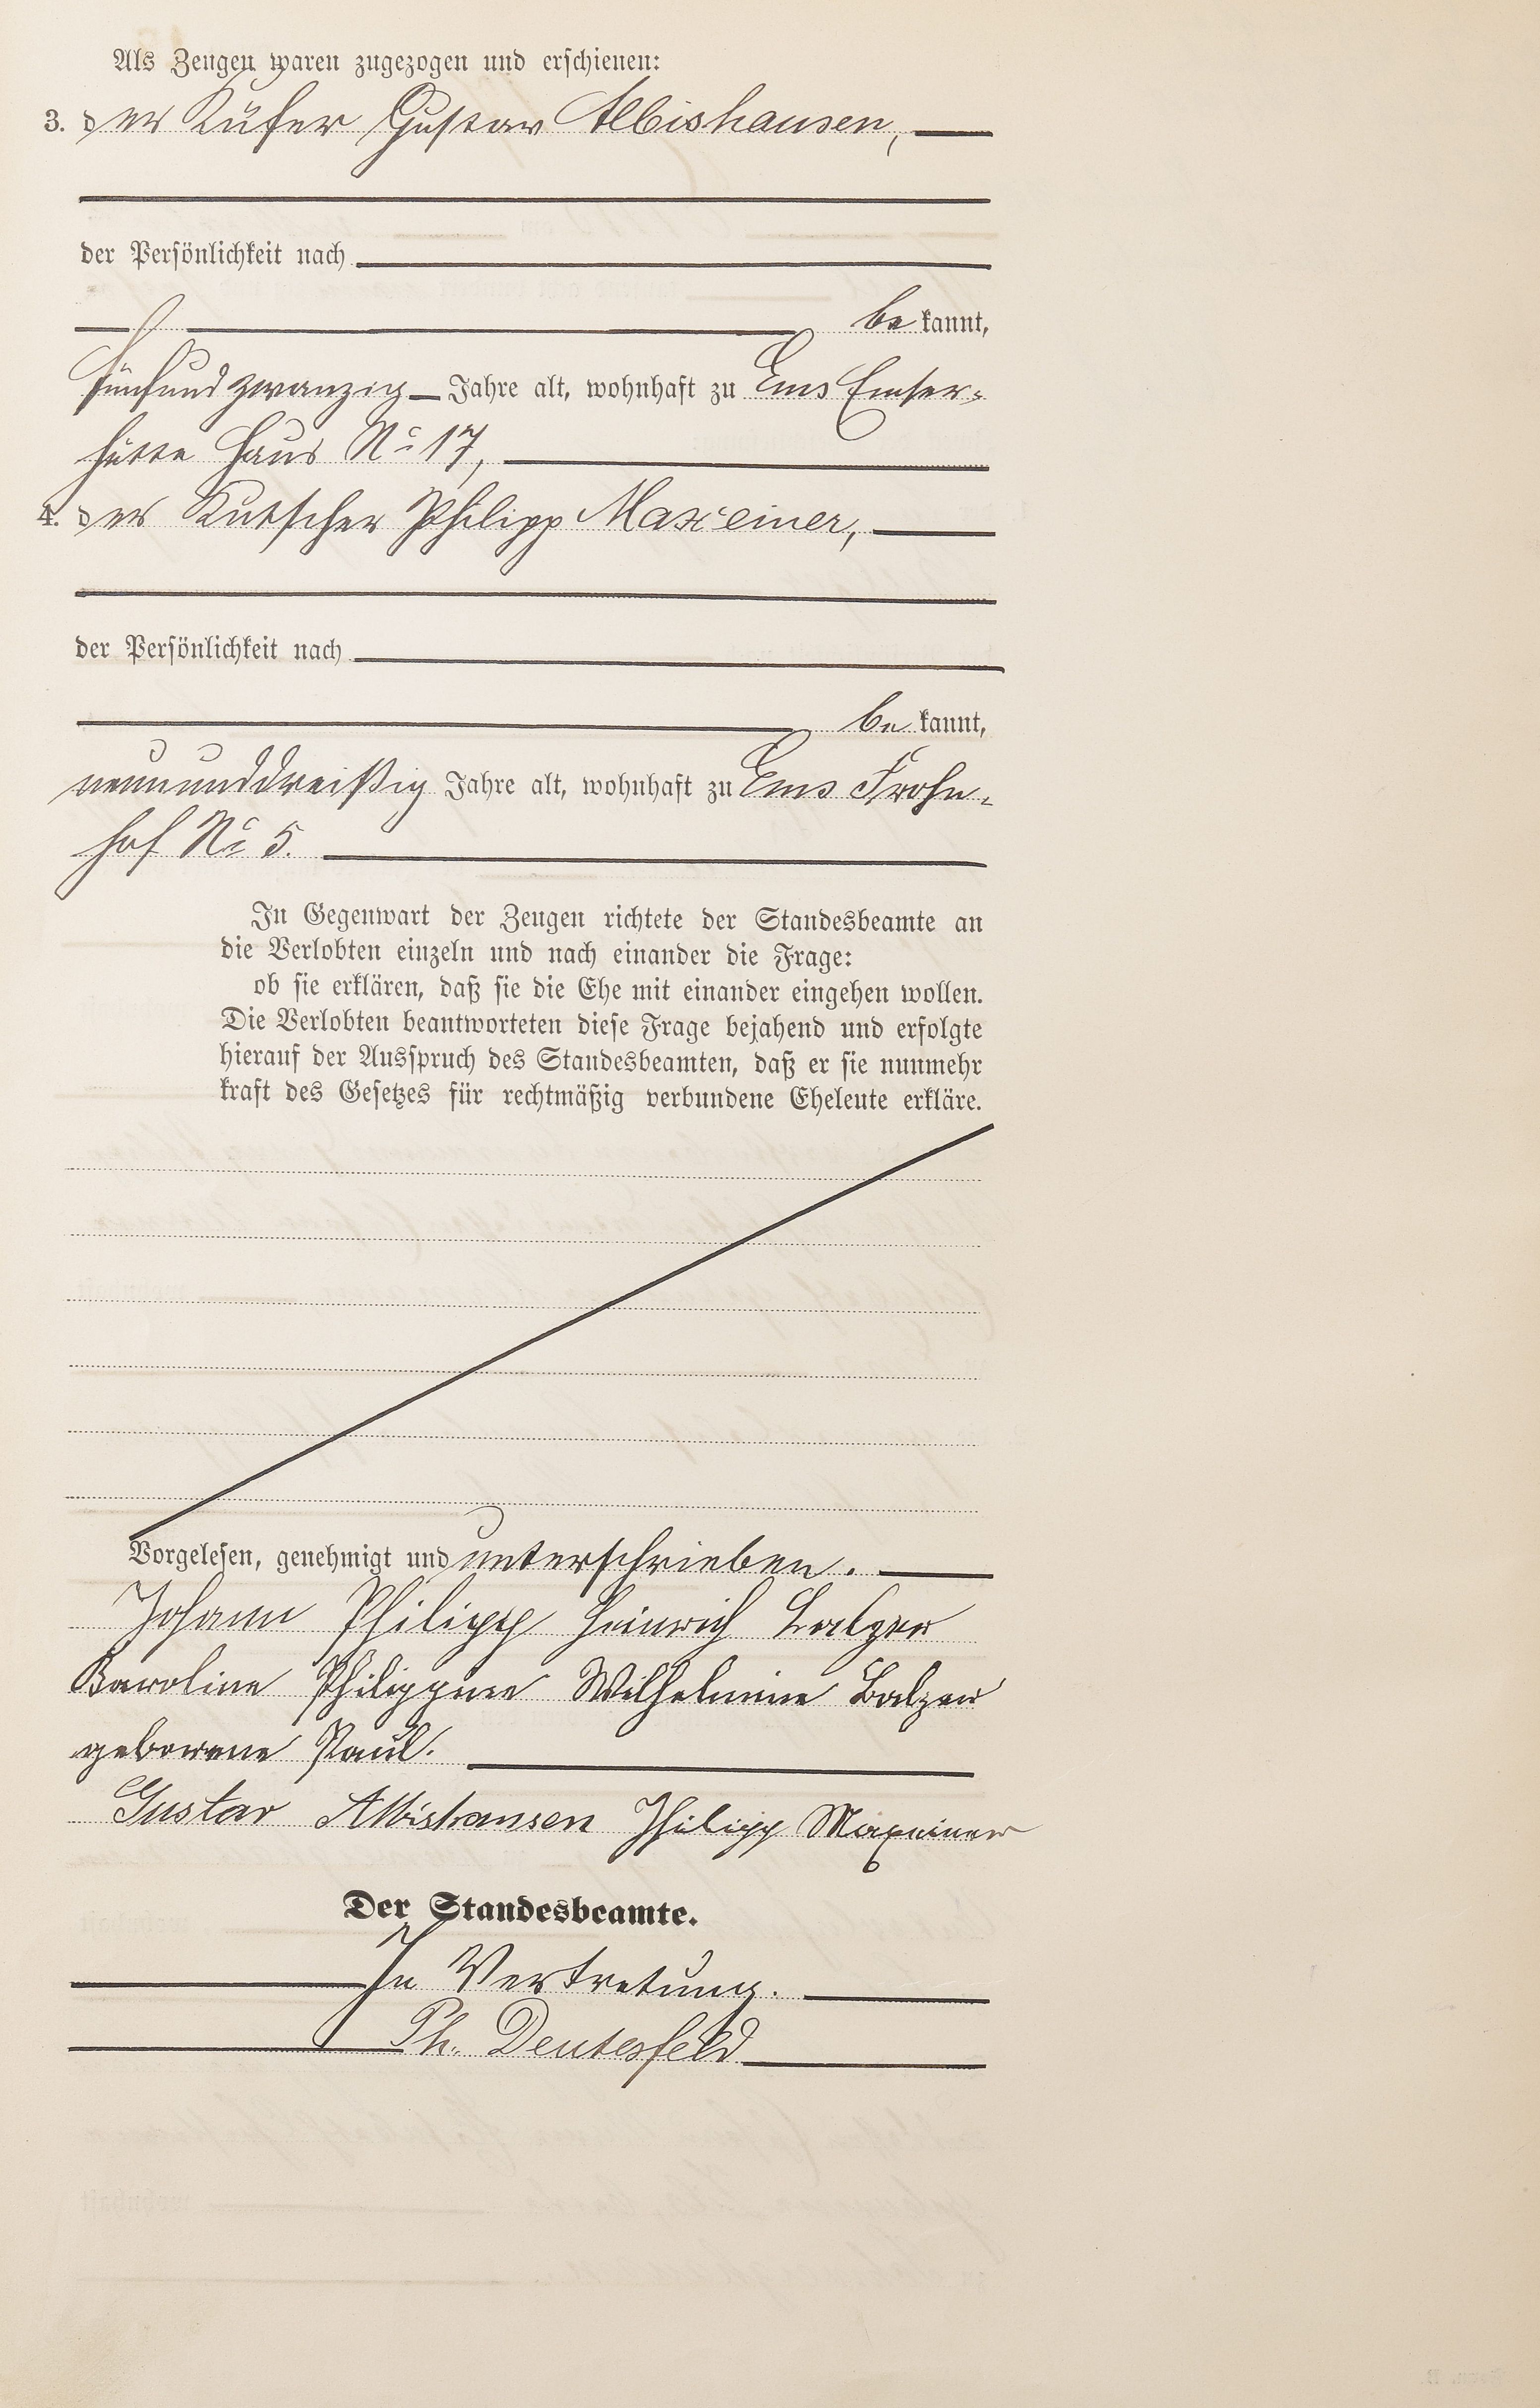 Als Zeugen waren zugezogen und erschienen:
3. der Küfer Gustav Albishausen,
der Persönlichkeit nach
be kannt,
fünfundzwanzig Jahre alt, wohnhaft zu Ems Emser-
hütte Haus No 17,
4. der Kutscher Philipp Maxeiner,
der Persönlichkeit nach
be kannt,
neununddreißig Jahre alt, wohnhaft zu Ems Frohn-
hof No 5.
In Gegenwart der Zeugen richtete der Standesbeamte an
die Verlobten einzeln und nach einander die Frage:
ob sie erklären, daß sie die Ehe mit einander eingehen wollen.
Die Verlobten beantworteten diese Frage bejahend und erfolgte
hierauf der Ausspruch des Standesbeamten, daß er sie nunmehr
kraft des Gesetzes für rechtmäßig verbundene Eheleute erkläre.
Vorgelesen, genehmigt und unterschrieben.
Johann Philipp Heinrich Balzer
Karoline Philippine Wilhelmine Balzer
geborene Paul.
Gustav Albishausen Philipp Maxeiner
Der Standesbeamte.
In Vertretung.
Ph. Deutesfeld